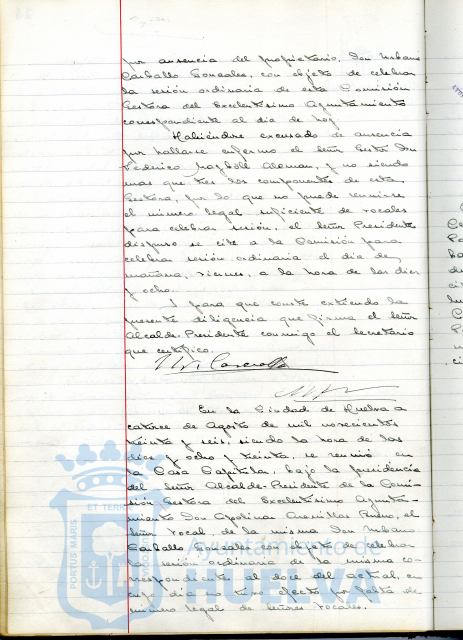 por ausencia del propietario, Don Urbano
Carballo Gonzales, con objeto de celebrar
la sesión ordinaria de esta Comisión
Gestora del Excelentisimo Ayuntamiento
correspondiente al dia de hoy
Habiéndose excusado de ausencia
por hallarse enfermo el señor Gestor Don
Federico Aleman, y no siendo
mas que tres los componentes de esta
Gestora, por lo que no puede reunirse
el número legal suficiente de vocales
para celebrar sesión, el señor Presidente
dispuso se cite a la Comisión para
celebrar sesión ordinaria el dia de
mañana, viernes, a la hora de las diez
y ocho.
Y para que conste extiendo la
presente diligencia que firma el señor
Alcalde-Presidente conmigo el Secretario
que certifico.
En la Ciudad de Huelva a
catorce de Agosto de mil novecientos
treinta y seis, siendo la hora de las
diez y ocho y treinta, se reunió en
la Casa Capitular, bajo la presidencia
del Señor Alcalde-Presidente de la Comi-
sión Gestora del Excelentisimo Ayunta-
miento Don Apolinar Arenillas Bueno, el
Señor Vocal de la misma Don Urbano
Carballo Gonzales con objeto de celebrar
la sesión ordinaria de la misma co-
rrespondiente al doce del actual, en
cuyo dia no tuvo efecto por falta de
número legal de señores Vocales.
PORTUS MARIS
ET TERRÆ
Ayuntamiento de
HUELVA